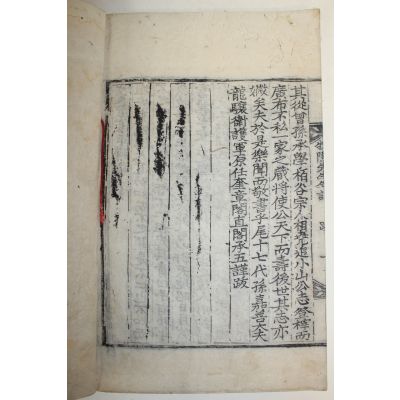 其從曾孫承學栢谷宗人相堯追小山公志登梓而
廣布不私一家之藏將使公天下而壽後世其志亦
媺矣夫於是樂聞而敬書乎尾十七代孫嘉善大夫
龍驤衛護軍原任奎章閣直閣承五謹跋
先生
跋